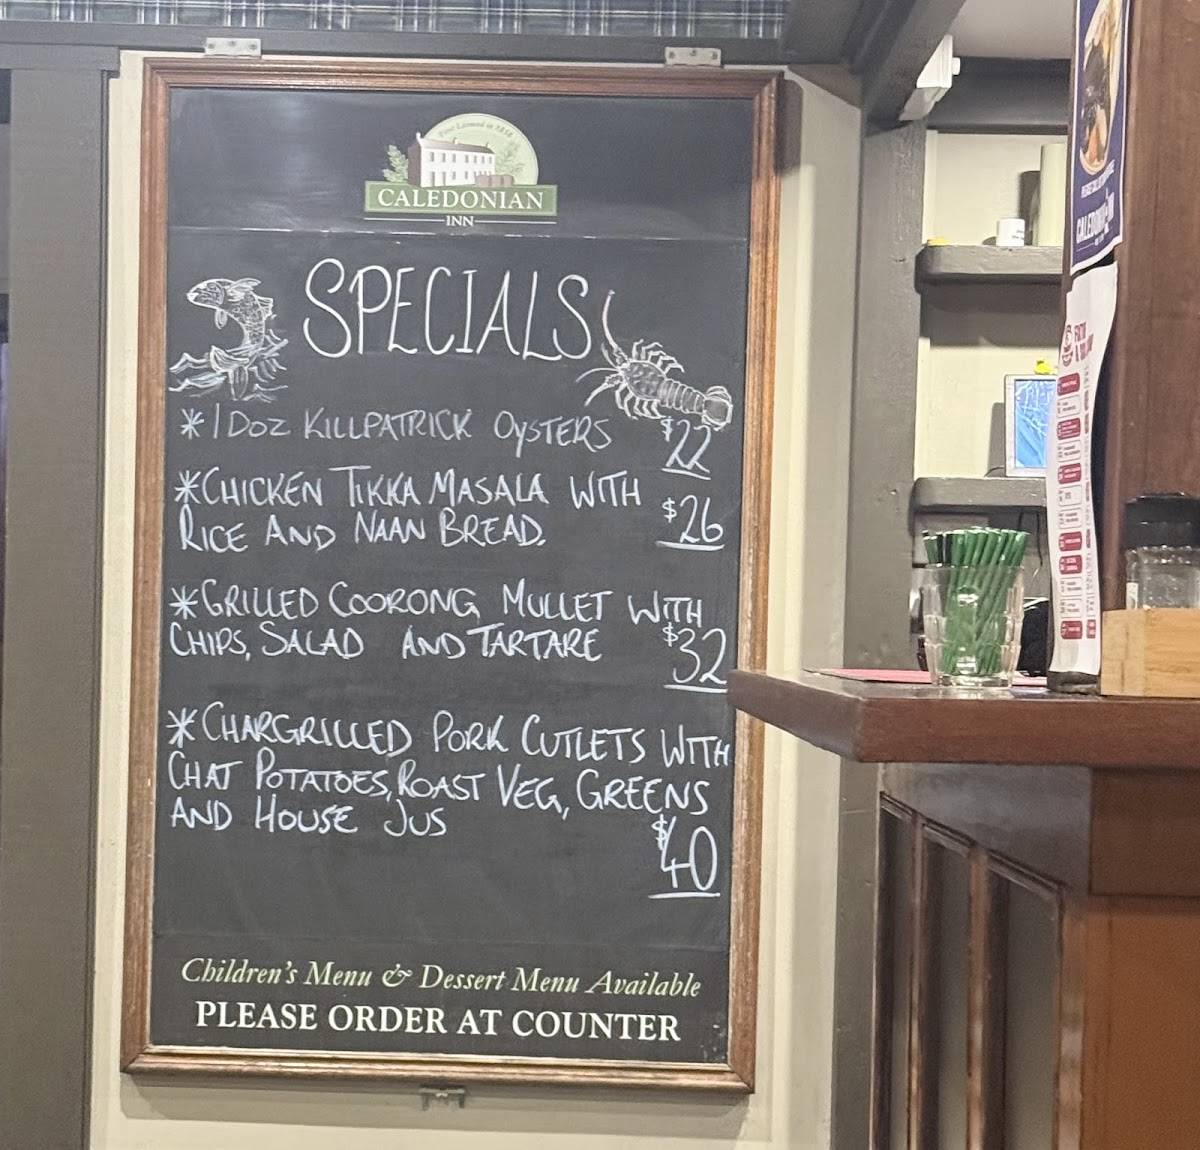 First Licensed in 1858
CALEDONIAN
INN
SPECIALS
* 1 DOZ KILLPATRICK OYSTERS $22
* CHICKEN TIKKA MASALA WITH
RICE AND NAAN BREAD. $26
* GRILLED COORONG MULLET WITH
CHIPS, SALAD AND TARTARE $32
* CHARGRILLED PORK CUTLETS WITH
CHAT POTATOES, ROAST VEG, GREENS
AND HOUSE JUS
$40
Children's Menu & Dessert Menu Available
PLEASE ORDER AT COUNTER
CALEDONIAN